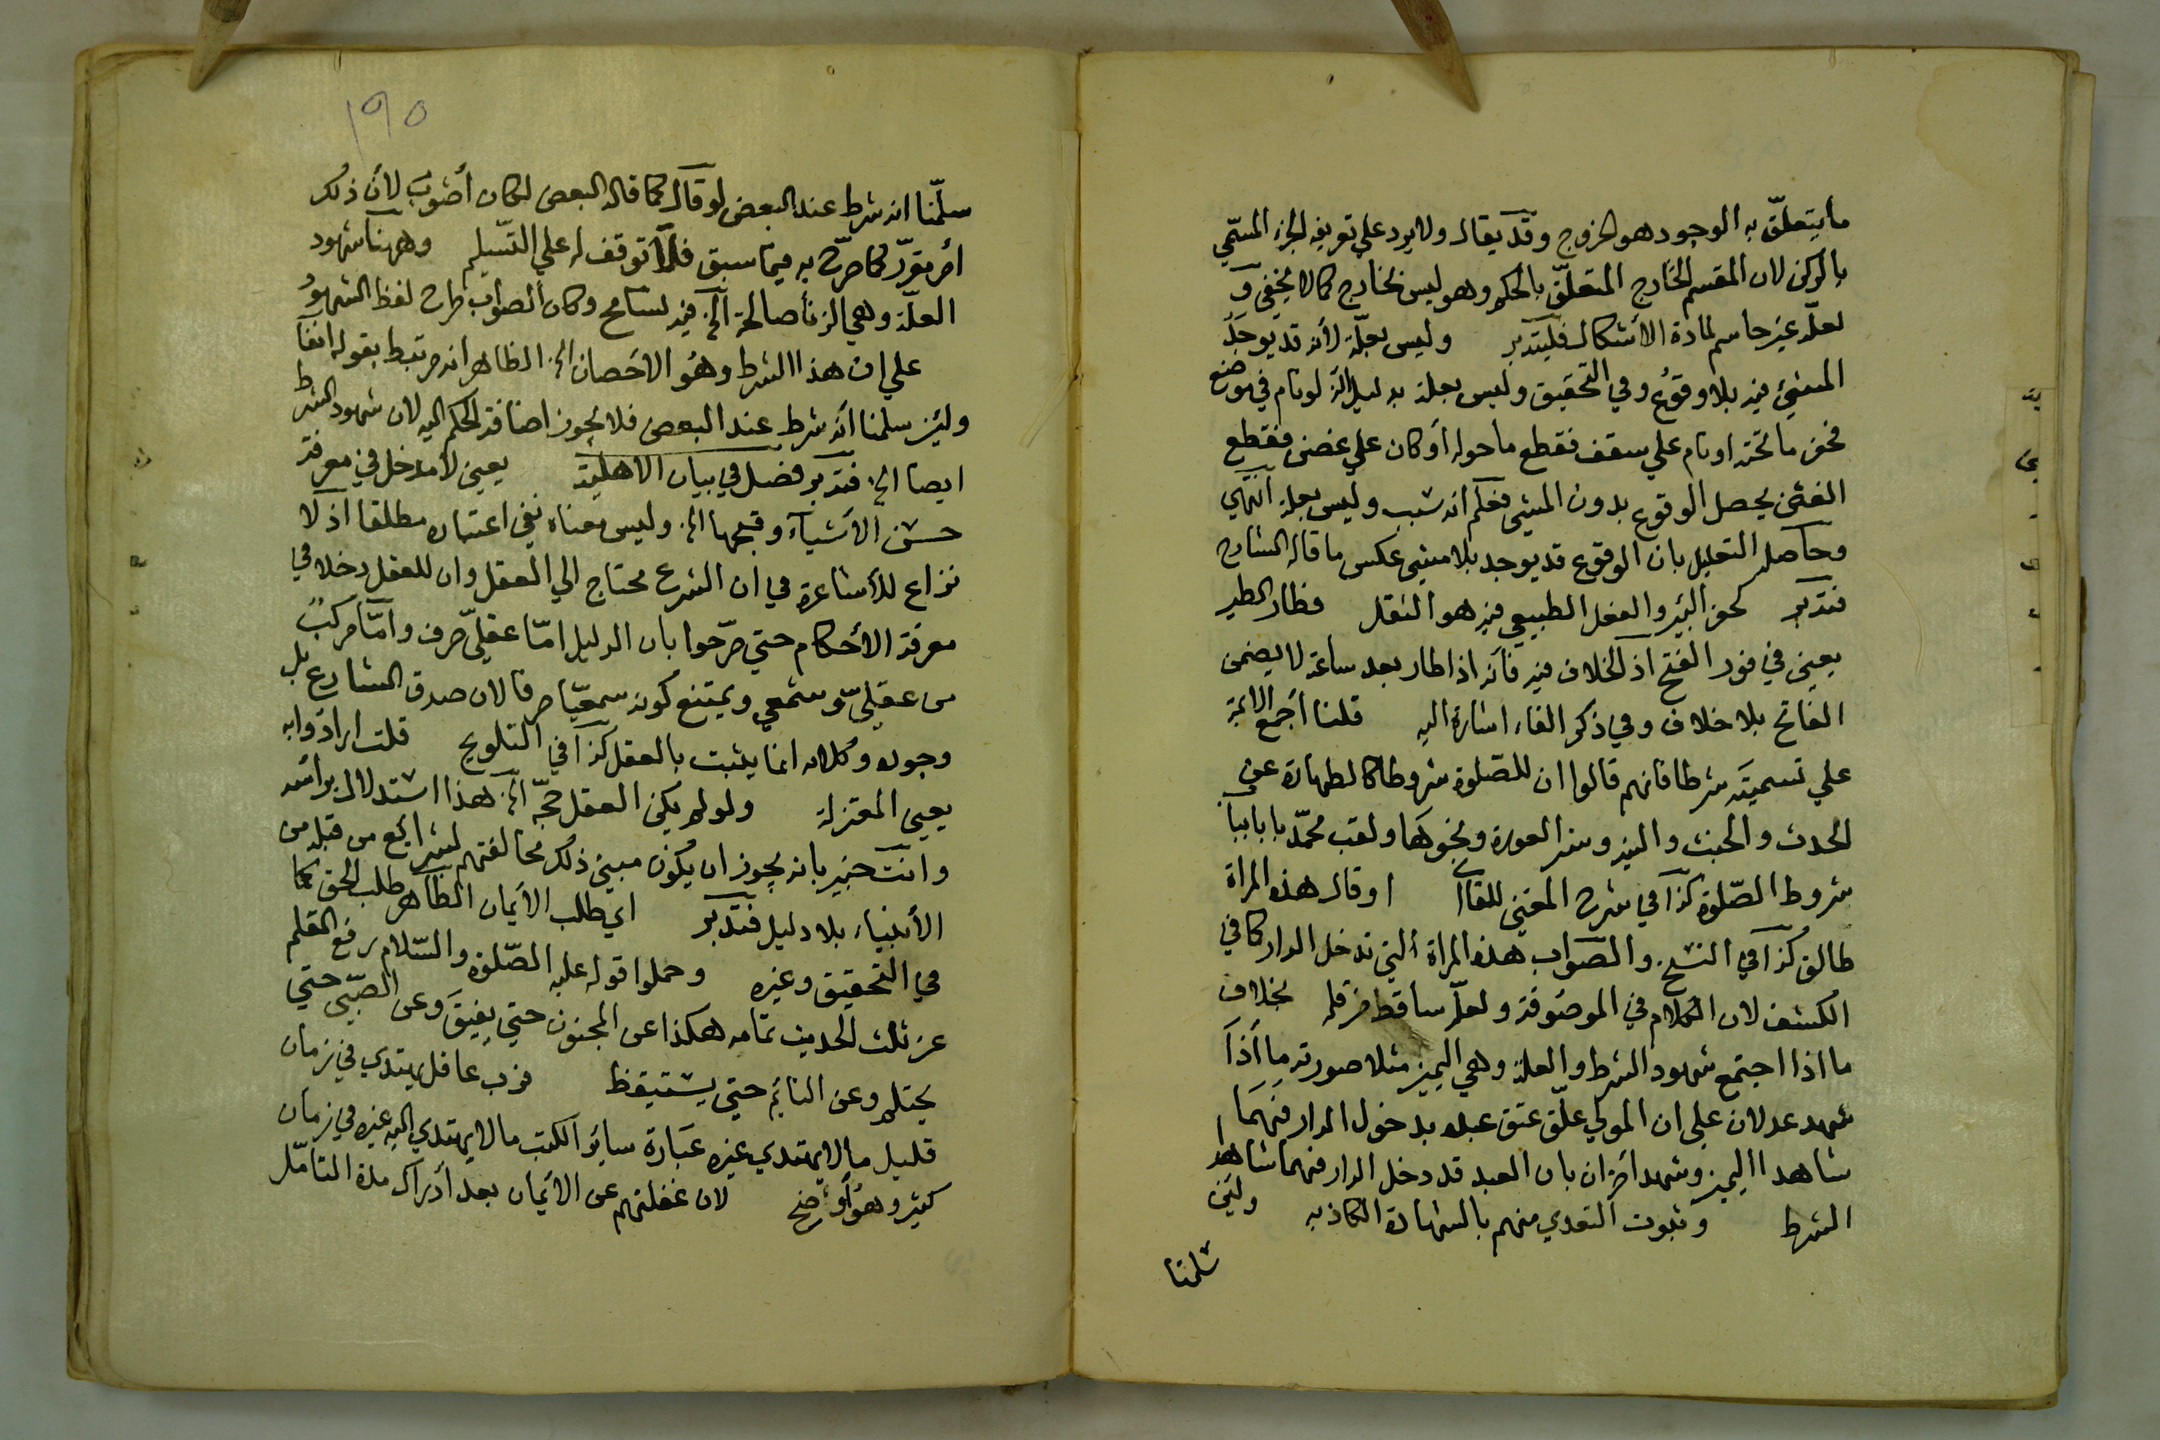 ما يتعلّق به الوجود هو الخروج وقد يقال ولا يرد علي تعريفه الجزء المسمّي
بالركن لان المقسم الخارج المتعلّق بالحكم وهو ليس بخارج كما لا يخفي و
لعلّه غير حاسم لمادة الاشكال فليتدبر وليس بعلّة لأنه قد يوجد
المشئ فيه بلا وقوع وفي التحقيق وليس بعلة بدليل انه لو نام في موضع
فحفر ما تحته او نام علي سقف فقطع ما حوله أو كان علي غصن فقطع
الغصن يحصل الوقوع بدون المشي فعلم انه سبب وليس بعلة انتهي
وحاصل التعليل بان الوقوع قد يوجد بلا مشي عكس ما قاله الشارح
فتدبر كحفر البئر والفعل الطبيعي فيه هو الثقل فطار الطير
يعني في فور الفتح اذ الخلاف فيه فأنه اذا طار بعد ساعة لا يضمن
الفاتح بلا خلاف وفي ذكر الفاء اشارة اليه قلنا اجمع الائمة
علي تسميته شرطا فانهم قالوا ان للصّلوة شروطا كالطهارة عن
الحدث والخبث والنية وستر العورة ونحوها ولقب محمّد بابا بباب
شروط الصّلوة كذا في شرح المغني للقاآني او قال هذه المراة
طالق كذا في النسخ والصواب هذه المراة التي تدخل الدار كما في
الكشف لان الكلام في الموصوفة ولعلّه ساقط من قلم بخلاف
ما اذا اجتمع شهود الشرط والعلة وهي اليمين مثلا صورته ما أذا
شهد عدلان علي ان المولي علّق عتق عبده بدخول الدار فهما
شاهدا اليمين وشهد اخران بان العبد قد دخل الدار فهما شاهدا
الشرط وثبوت التعدي منهم بالشهادة الكاذبه ولئن
سلمنا
١٩٥
سلّمنا انه شرط عند البعض لو قال كما قاله البعض لكان أصوب لأن ذلك
أمر مقرّر كما صرّح به فيما سبق فلا توقف له علي التسليم وههنا شهود
العلّة وهي الزنا صالحة الخ فيه تسامح وكان الصواب طرح لفظ الشهود
علي ان هذا الشرط وهو الاحصان الخ الظاهر انه مرتبط بقوله انفا
ولئن سلمنا أنه شرط عند البعض فلا يجوز اضافة الحكم اليه لان شهود الشرط
ايضا الخ فتدبر فصل في بيان الاهلية يعني لا مدخل في معرفة
حسن الأشياء وقبحها الخ وليس معناه نفي اعتباره مطلقا اذ لا
نزاع للأشاعرة في ان الشرع محتاج الي العقل وان للعقل دخلا في
معرفة الأحكام حتي صرّحوا بان الدليل امّا عقليّ صرف وامّا مركبٌ
من عقليّ وسمعي ويمتنع كونه سمعيّا صرفا لان صدق الشارع بل
وجوده وكلامه انما يثبت بالعقل كذا في التلويح قلت ارادوا به
يعني المعتزلة ولو لم يكن العقل حجّة الخ هذا استدلال برأسه
وانت خبير بانه يجوز ان يكون مبني ذلك مخالفتهم لشرايع من قبله من
الأنبياء بلا دليل فتدبر اي طلب الأيمان الظاهر طلب الحق كما
في التحقيق وغيره وحملوا قوله عليه الصّلوة والسّلام رفع القلم
عن ثلث الحديث تمامه هكذا عن المجنون حتي يفيق وعن الصبّي حتي
يحتلم وعن النائم حتي يستيقظ فرب عاقل يهتدي في زمان
قليل ما لا يهتدي غيره عبارة ساير الكتب ما لا يهتدي اليه غيره في زمان
كثير وهو أوضح لان غفلتهم عن الأيمان بعد أدراك مدة التامّل